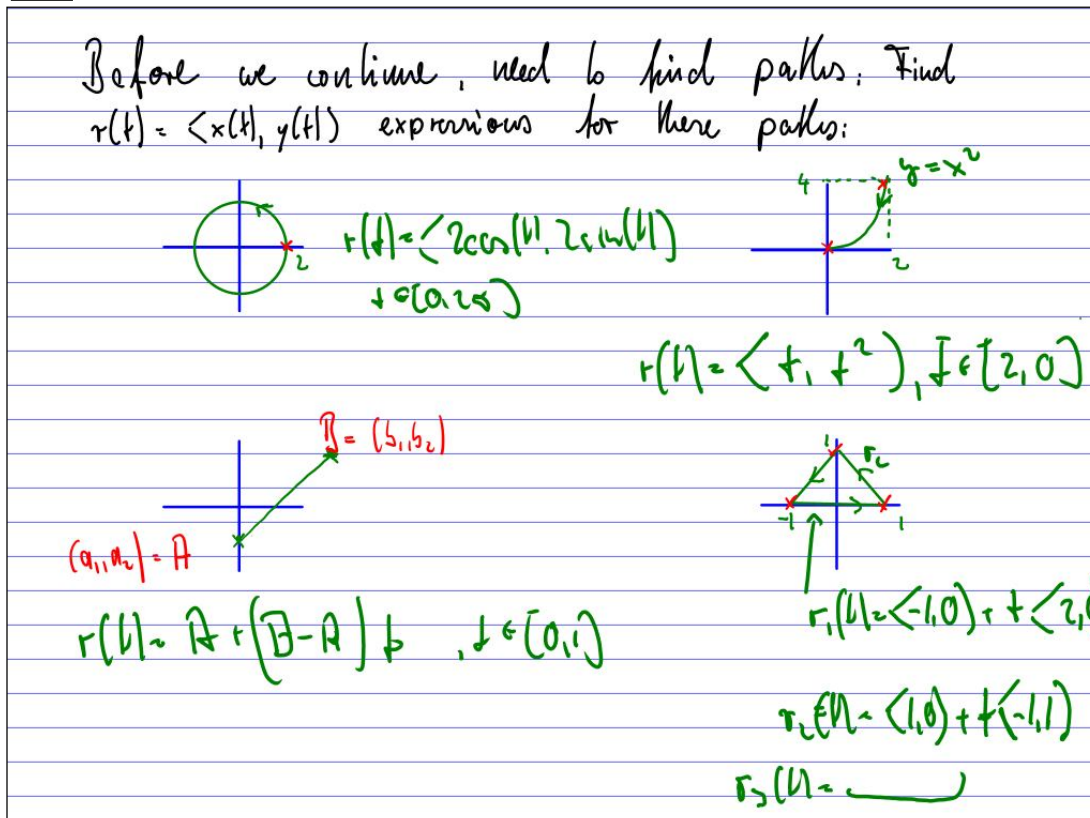 Before we continue, need to find paths. Find
r(t) = <x(t), y(t)> expressions for these paths:
2
r(t) = <2cos(t), 2sin(t)>
t ∈ [0, 2π]
4
y = x²
2
r(t) = <t, t²>, t ∈ [2, 0]
B = (b₁, b₂)
(a₁, a₂) = A
r(t) = A + (B-A) t , t ∈ [0, 1]
1
r₂
-1
1
r₁(t) = <-1, 0> + t <2, 0
r₂(t) = <1, 0> + t <-1, 1>
r₃(t) =